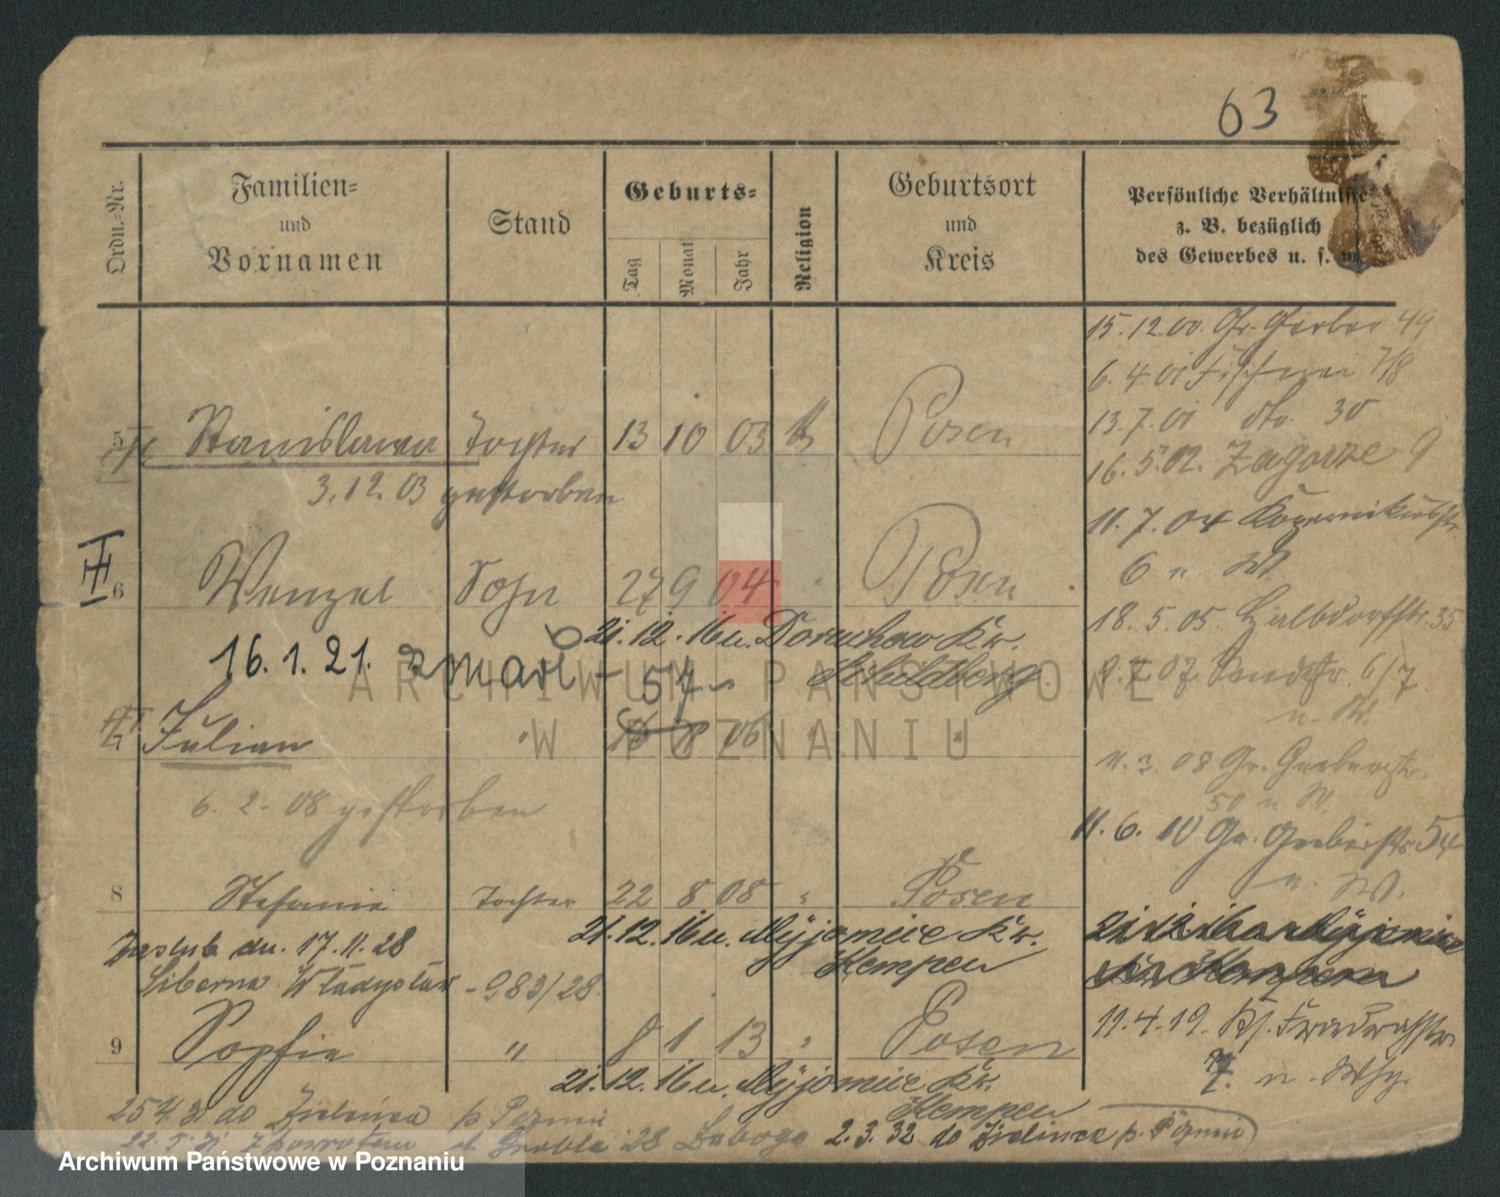 63
Ordn.=Nr.
Familien=
und
Vornamen
Stand
Geburts=
Tag
Monat
Jahr
Religion
Geburtsort
und
Kreis
Persönliche Verhältnisse
z. B. bezüglich
des Gewerbes u. s. w.
15.12.00. Gr. Gerber 49
6.4.01 Fischerei 7/8
13.7.01 dto. 30
5 Stanislawa Tochter 13 10 03 k Posen
16.5.02. Zagorze 9
3.12.03 gestorben
11.7.04 Kopernikusstr.
6
III 6 Wenzel Sohn 27 9 04 " Posen
18.5.05. Halbdorfstr. 35
21.12.16 u. Doruchow Kr.
Schildberg
16.1.21. zmarł - 57 -
6/7
7 Julian " 16 8 06 " "
11.3.08 Gr. Gerberstr.
50 u. W
6.2.08 gestorben
11.6.10 Gr. Gerberstr. 54
u. W.
8 Stefanie Tochter 22 8 08 " Posen
21.12.16 u. Myjomice Kr.
Kempen
dn. 17.11.28
Władysław - 983/28
9 Sophie " 8 1 13 " Posen
11.4.19.
7.
21.12.16 u. Myjomice Kr.
Kempen
do Zielińca p. Poznań
28 2.3.32 do Zielińca p. Poznań
ARCHIWUM PAŃSTWOWE
W POZNANIU
Archiwum Państwowe w Poznaniu